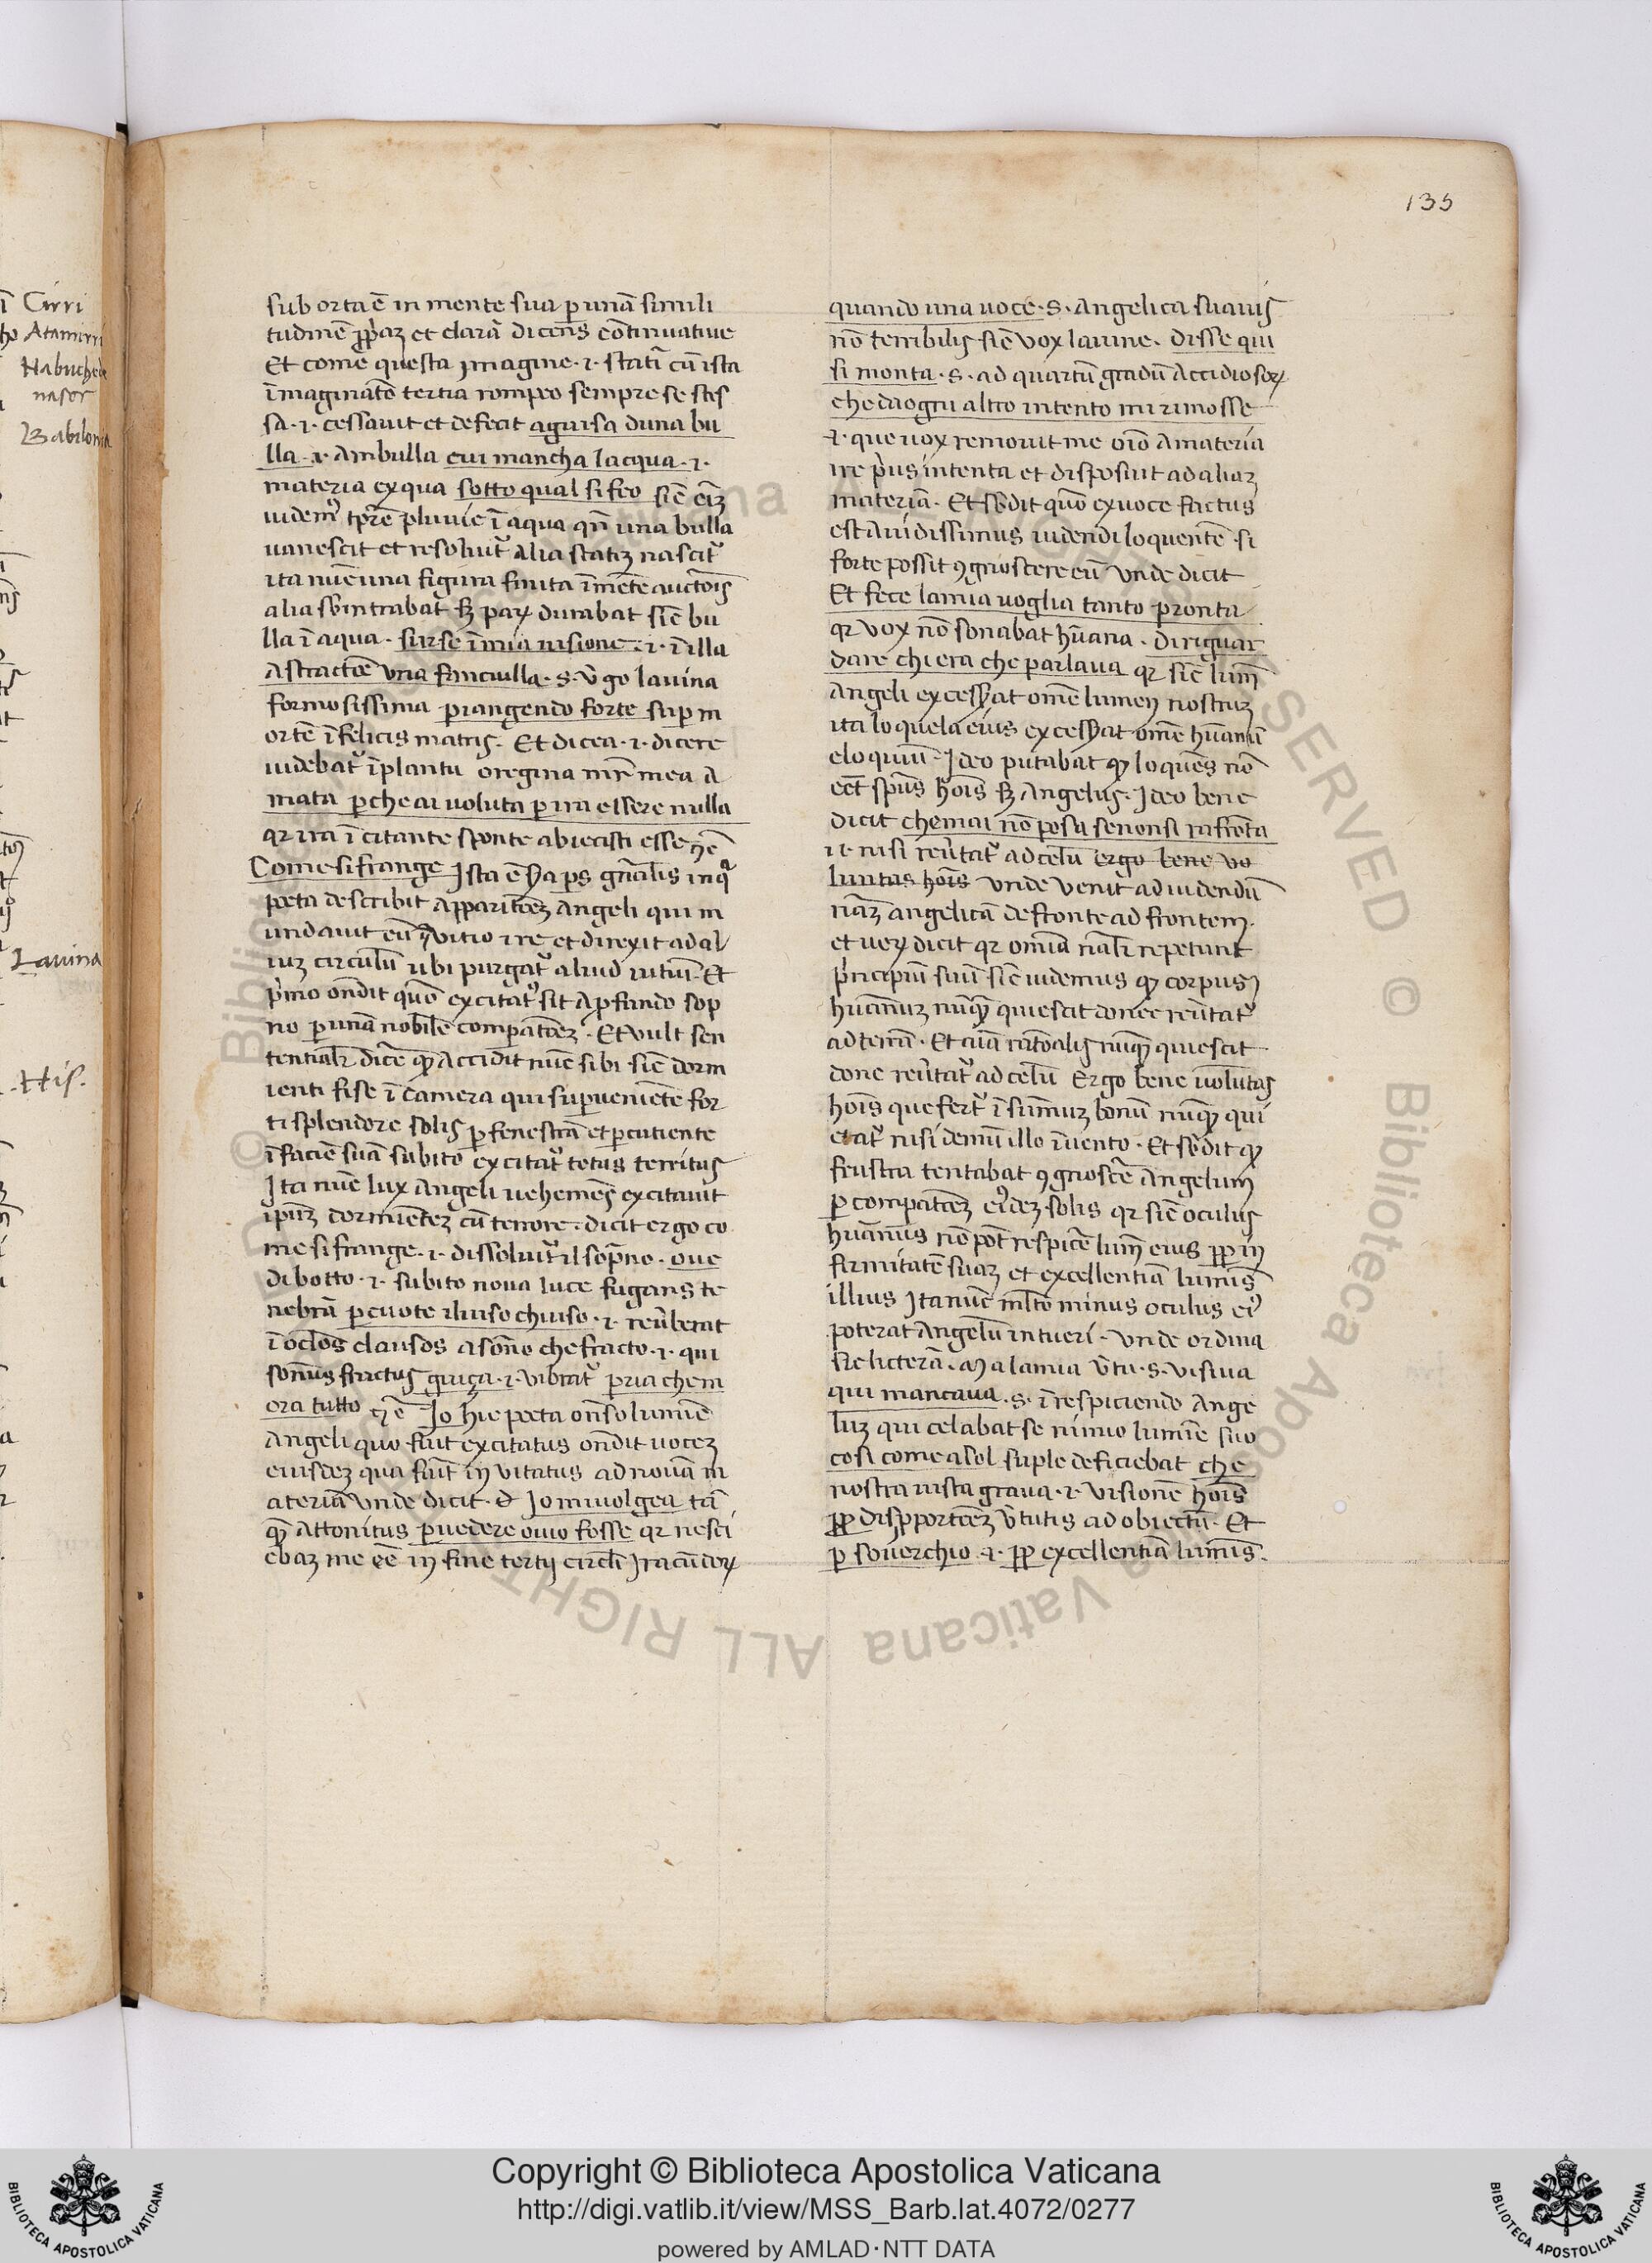 135
Cirri
Atamirri
Nabuchod
nasor
Babilonia
Lauina
.His.
sub orta ē in mente sua p unā simili
tudinē ꝓp̄az et clarā dicens cōtinuatiue
Et come questa ymagine · i · statī cū ista
īmaginatōe tertia rompeo sempre se stes
sa · i · cessauit et defecit a guisa duna bu
lla · i · ambulla cui mancha lacqua · i ·
materia ex qua sotto qual si feo sic̄ eīz
uidem᷒ tp̄re pluuie ī aqua qn̄ una bulla
uanescit et resoluit᷒ alia statiz nascit᷒
ita nūc una figura finita ī mēte auctoīs
alia sb̄intrabat sz paꝝ durabat sic̄ bu
lla ī aqua · surse ī mia uisione · i · ī illa
astractōe una fanciulla · s · v̄go lauina
formosissima piangendo forte sup m
ortē īfelicis matris · Et dicea · i · dicere
uidebat᷒ ī plantu o regina mr̄ mea a
mata pche ai uoluta p ira essere nulla
qr ira īcitante sponte abiecisti esse ꝛc̄
Come si frange Ista ē 3a ps gn̄alis in qᷓ
poeta describit apparitōez angeli qui m
undauit eū a vitio ire et direxit ad al
iuz circulū ubi purgat᷒ aliud uitiū · Et
pͥmo ondit quō excitat᷒ sit a ꝓfundo sop
no p unā nobilē compatōez · Et vult sen
tentialr̄ dicē ꝙ accidit nūc sibi sic̄ dorm
ienti fise ī camera qui supueniēte for
ti splendore solis p fenestrā et pcutiente
ī faciē suā subito excitat᷒ totus territus
Ita nūc lux angeli uehemēs excitauit
ip̄uz dormiētez cū terrore · dicit ergo co
me si frange · i · dissoluit᷒ il sopno · oue
di botto · i · subito noua luce fugans te
nebrā pcuote il uiso chiuso · i · reūberat
ī oclōs clausos a sōno che fracto · i · qui
somnus fractus guiça · i · vibrat᷒ pria che m
ora tutto ꝛc̄ Io hic poeta ōnso lumīe
angeli quo fuit excitatus ondit uocez
eiusdez qua fuit inuitatus ad nouā m
ateriā vnde dicit · & Io mi uolgea tā
qᷓ attonitus p uedere ouio fosse qr nesci
ebaz me eē in fine tertij circli Iracūdoꝝ
quando una uoce · s · angelica suauis
nō terribilis sic̄ vox lauine · disse qui
si monta · s · ad quartū gradū accidiosoꝝ
che da ogni altro intento mi rimosse
i · que uox remouit me oīo a materia
ire pͥus intenta et disposuit ad aliaz
materiā · Et sb̄dit quō ex uoce factus
est auidissimus uidendi loquentē si
forte possit ꝯgnoscere eū vnde dicit
Et fece la mia uoglia tanto pronta
qr vox nō sonabat hūana · di riguar
dare chi era che parlaua qr sic̄ lum̄
angeli excessat omē lumen nostruz
ita loquela eius excessat omē hūanū
eloquiū · Ideo putabat ꝙ loquēs nō
eēt spūs hoīs sz angelus · Ideo bene
dicit che mai nō posa se non si rafrōta
i · nisi reūtat᷒ ad celū ergo bene vo
luntas hoīs vnde venit ad uidendū
nāz angelicā de fronte ad frontem ·
et ueꝝ dicit qr omīa nāl'r repetunt
pͥncipiū suū sic̄ uidemus ꝙ corpus
humanuz nūqᷓ quiescit donec reūtat᷒
ad terrā · Et aīa ratōalis nūqᷓ quiescit
done reūtat᷒ ad celū Ergo bene uolūtas
hoīs que fert᷒ ī sum̄uz bonū nūqᷓ qui
etat᷒ nisi demū illo īuento · Et sb̄dit ꝙ
frustra tentabat ꝯgnoscē angelum
p compatōez eiᷤdez solis qr sic̄ oculus
hūanus nō pōt respicē lum̄ eius ꝓp in
firmitatē suaz et excellentiā luminis
illius Ita nūc mlto minus oculus eiᷤ
poterat angelū intueri · vnde ordina
sic litterā · Ma la mia v̄tu · s · visiua
qui mancaua · s · ī respiciendo ange
luz qui celabat se nimio lumīe suo
cosi come al sol suple deficiebat che
nostra uista graua · i · visionē hoīs
ꝓp disꝓportōez v̄tutis ad obiectū · Et
p souerchio · i · ꝓp excellentiā luminis ·
Copyright © Biblioteca Apostolica Vaticana
http://digi.vatlib.it/view/MSS_Barb.lat.4072/0277
powered by AMLAD·NTT DATA
BIBLIOTECA APOSTOLICA VATICANA
BIBLIOTECA APOSTOLICA VATICANA